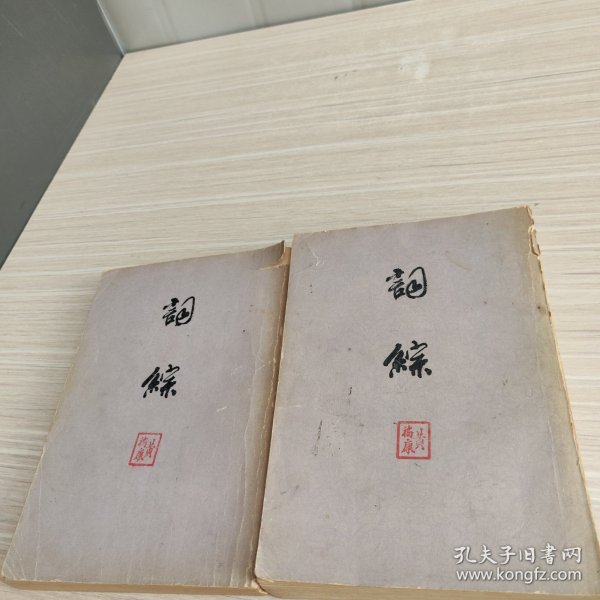 詞
綜
詞
綜
孔夫子旧书网
www.kongfz.com